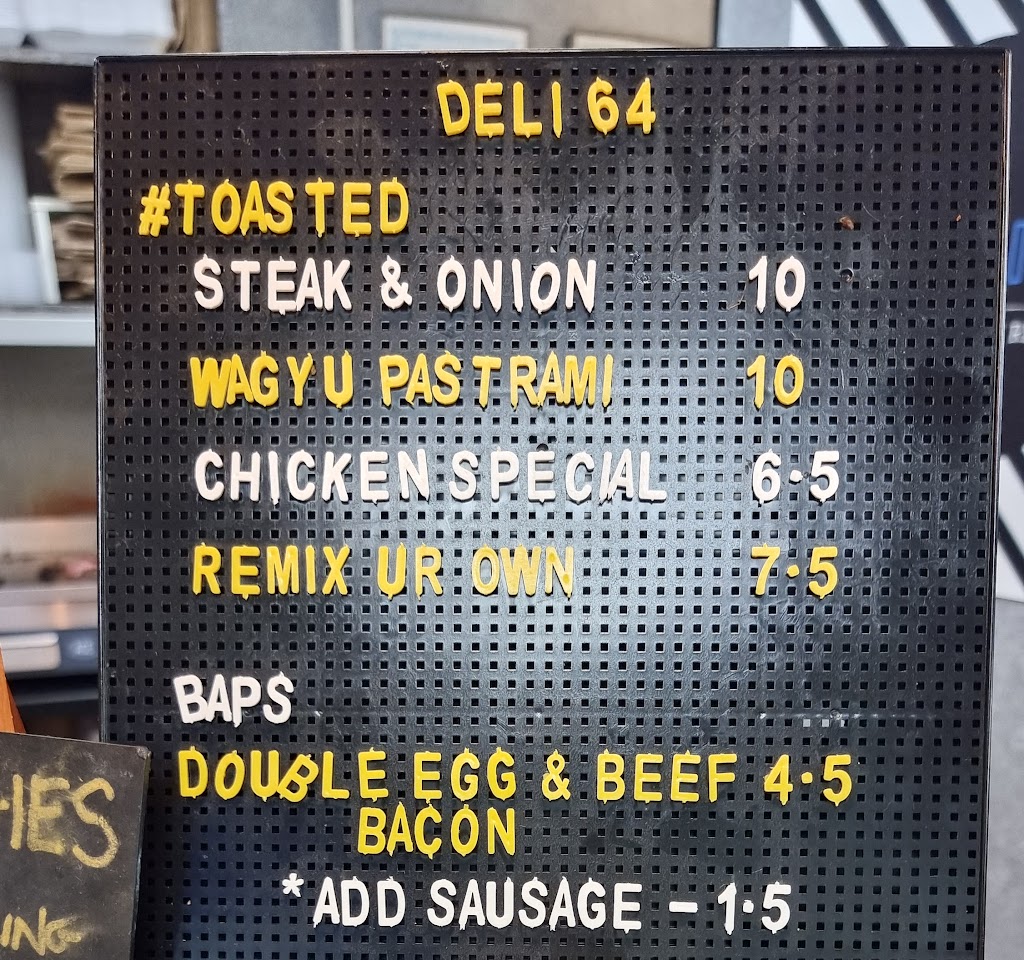 DELI 64
#TOASTED
STEAK & ONION 10
WAGYU PASTRAMI 10
CHICKEN SPECIAL 6·5
REMIX UR OWN 7·5
BAPS
DOUBLE EGG & BEEF 4·5
BACON
*ADD SAUSAGE - 1·5